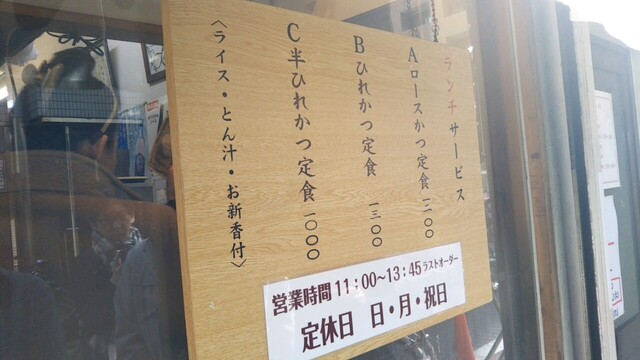 ランチサービス
Aロースかつ定食 一二〇〇
Bひれかつ定食 一三〇〇
C半ひれかつ定食 一〇〇〇
〈ライス・とん汁・お新香付〉
営業時間11:00〜13:45ラストオーダー
定休日 日・月・祝日